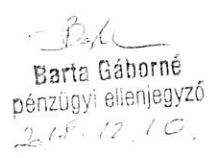 Barta Gáborné
pénzügyi ellenjegyző
2018.12.10.